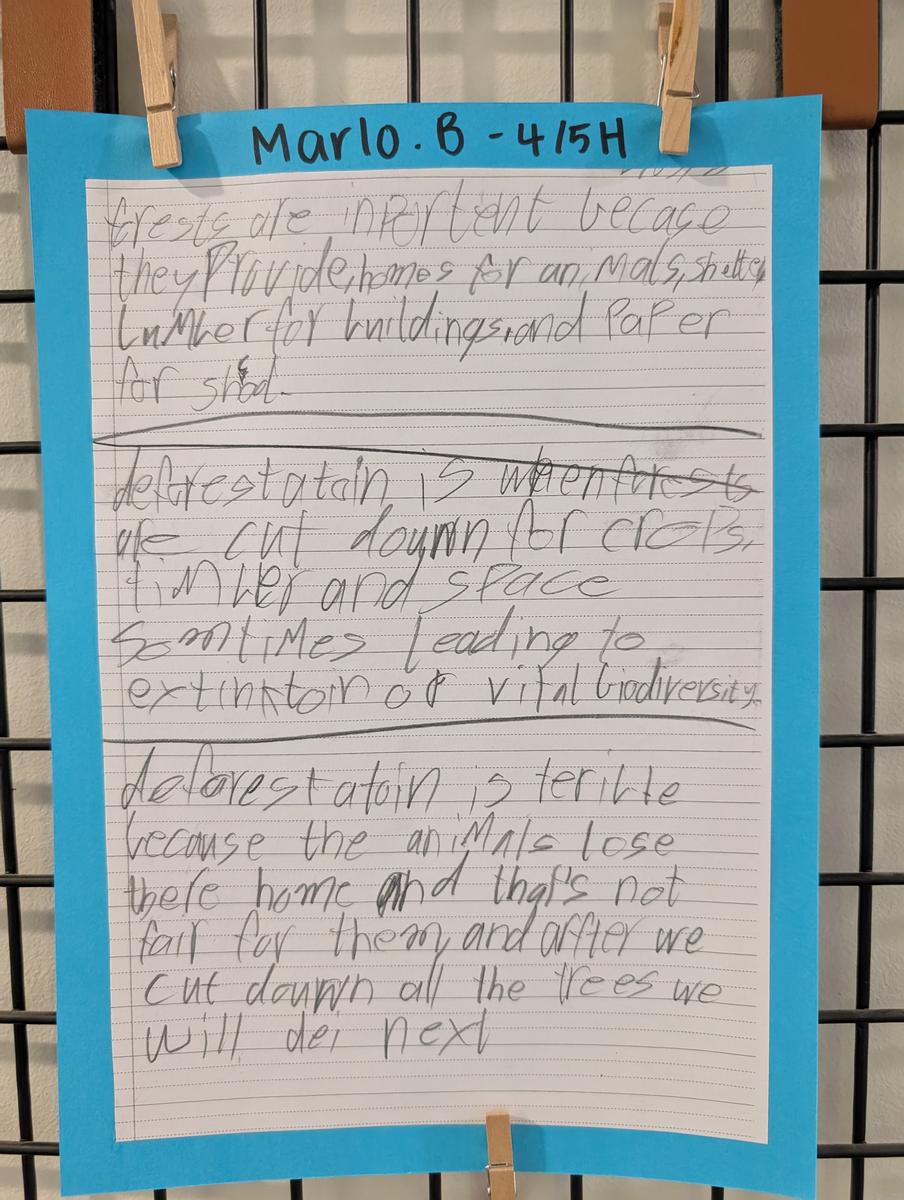 Marlo.B - 4/5H
forests are inportent becaso
they Provide, homes for animals, shelter
lumber for buildings, and PaPer
for shod.
deforestatoin is when forests
are cut douwn for croPs,
timber and space
somtimes leading to
extinktoin of vital biodiversity.
deforestatoin is terible
because the animals lose
there home and that's not
fair for them, and affter we
cut douwn all the trees we
will dei next